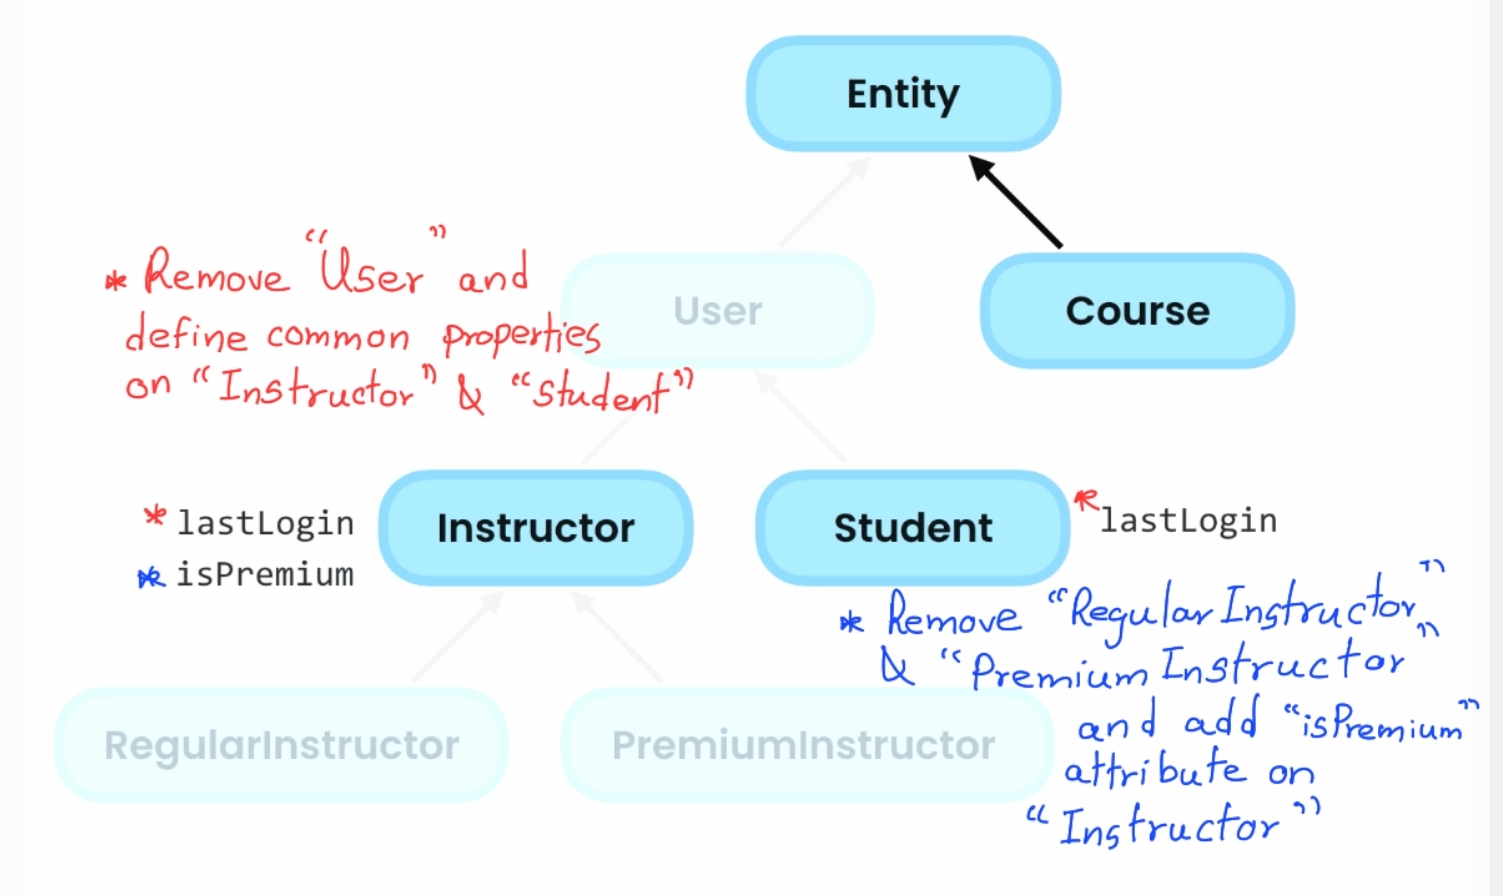 Entity
* Remove "User" and
define common properties
on "Instructor" & "Student"
User
Course
* lastLogin
* isPremium
Instructor
Student
* lastLogin
* Remove "RegularInstructor"
& "PremiumInstructor"
and add "isPremium"
attribute on
"Instructor"
RegularInstructor
PremiumInstructor